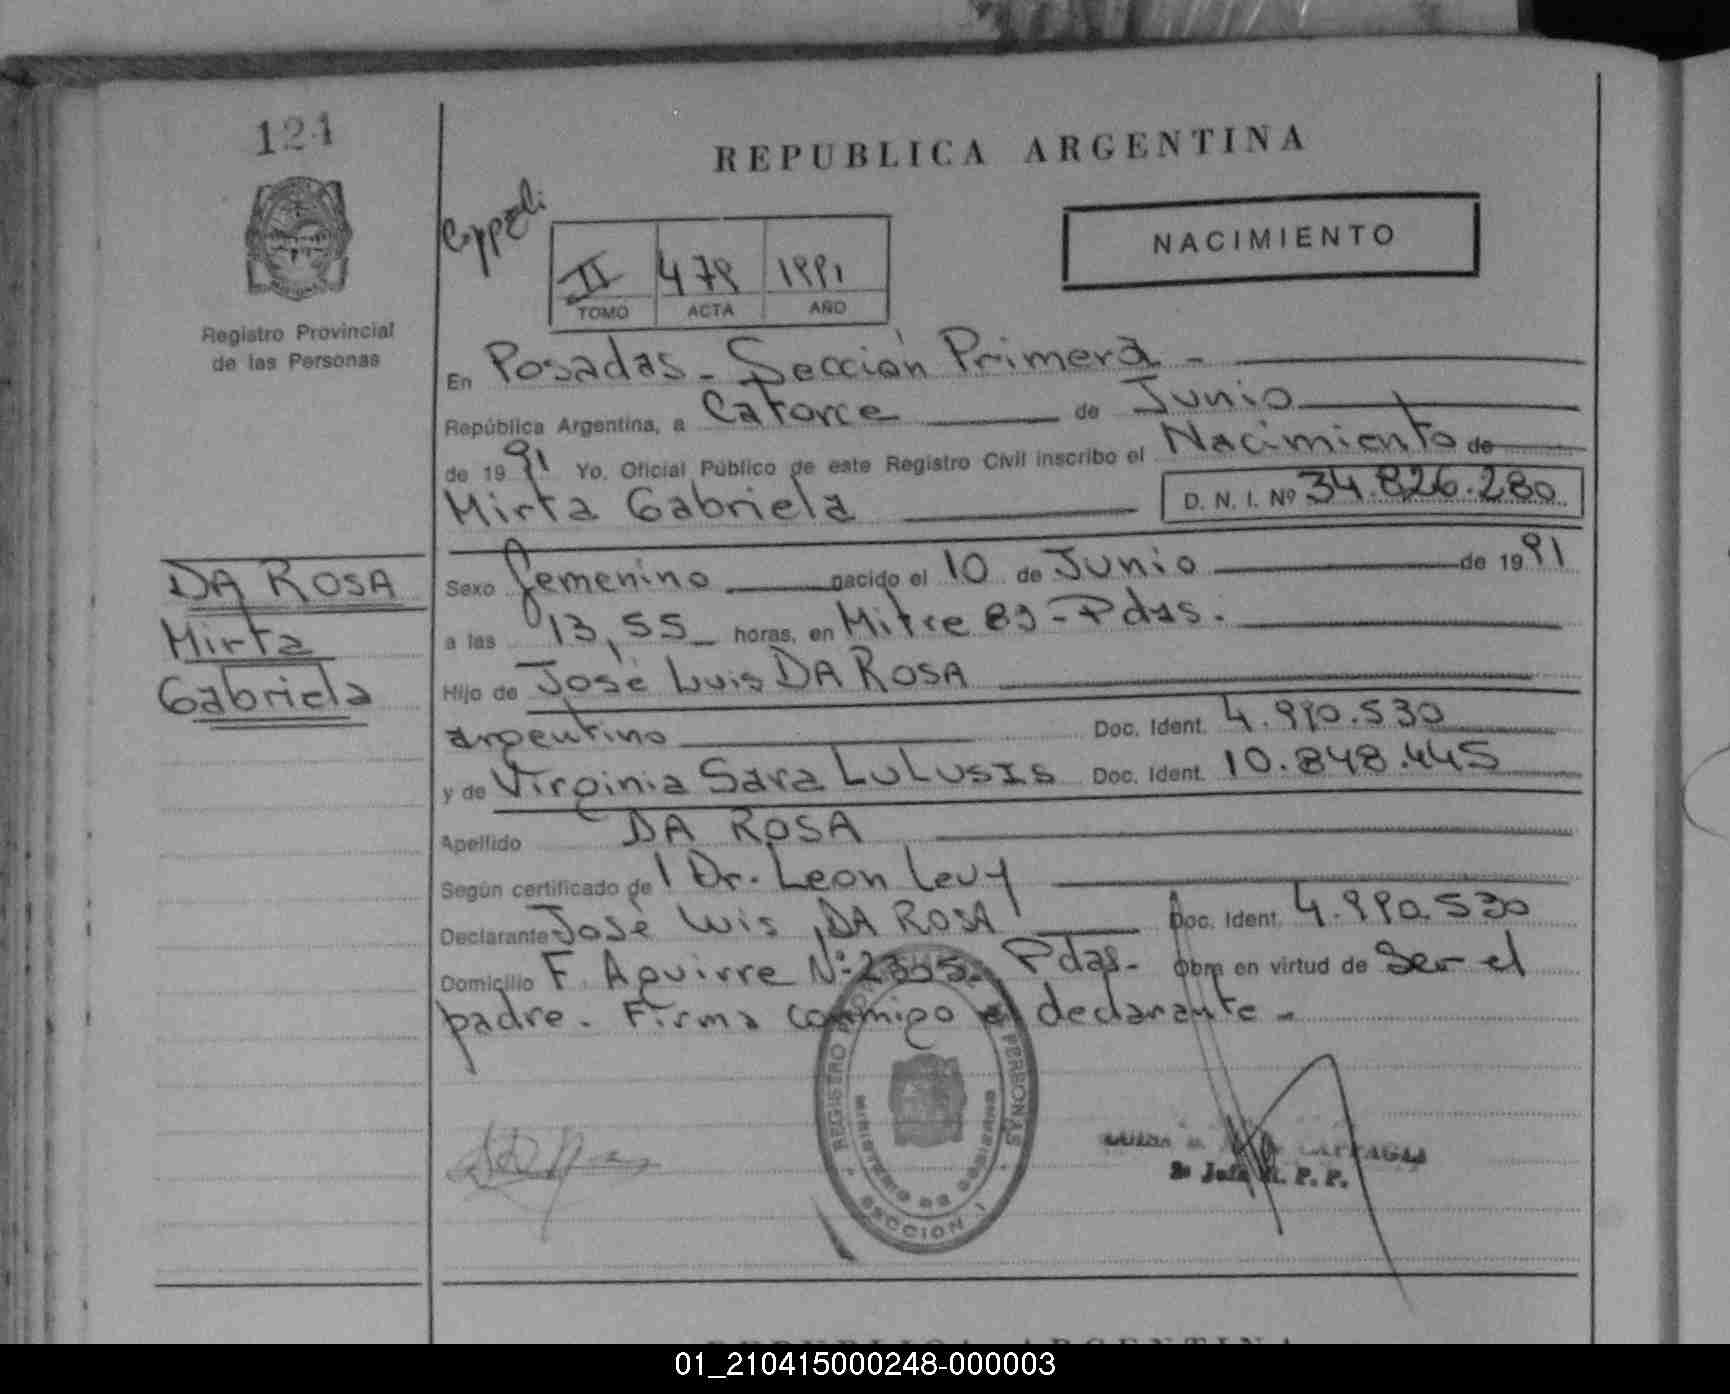 124
REPUBLICA ARGENTINA
NACIMIENTO
II 479 1991
TOMO ACTA AÑO
Registro Provincial
de las Personas
En Posadas - Sección Primera -
República Argentina, a Catorce de Junio
de 1991 Yo, Oficial Público de este Registro Civil inscribo el Nacimiento de
Mirta Gabriela D. N. I. Nº 34.826.280
DA ROSA
Mirta
Gabriela
Sexo femenino nacido el 10 de Junio de 1991
a las 13,55 horas, en Mitre 89 - Pdas.
Hijo de José Luis DA ROSA
argentino Doc. Ident. 4.990.530
y de Virginia Sara LULUSIS Doc. Ident. 10.848.445
Apellido DA ROSA
Según certificado de l Dr. Leon Levy
Declarante José Luis DA ROSA Doc. Ident. 4.990.530
Domicilio F. Aguirre Nº 2335 - Pdas. Obra en virtud de Ser el
padre. Firma conmigo el declarante -
REGISTRO PERSONAS
MINISTERIO DE GOBIERNO
SECCION I
2º Jefe R. P. P.
REPUBLICA ARGENTINA
01_210415000248-000003